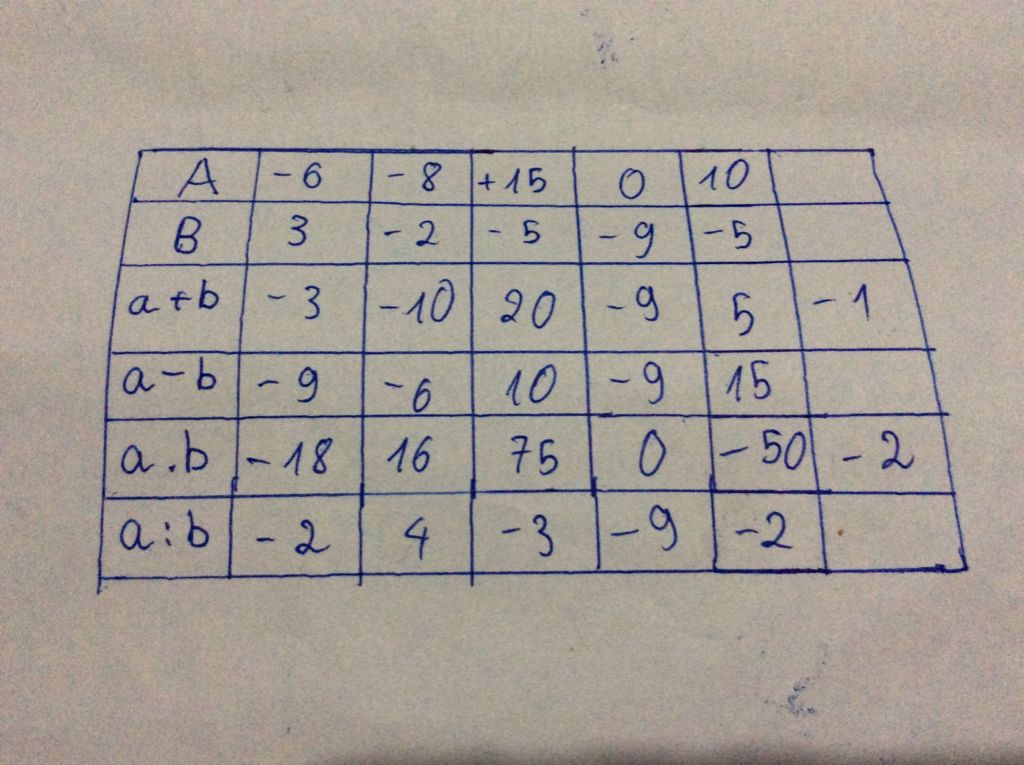 A -6 -8 +15 0 10
B 3 -2 -5 -9 -5
a+b -3 -10 20 -9 5 -1
a-b -9 -6 10 -9 15
a.b -18 16 75 0 -50 -2
a:b -2 4 -3 -9 -2